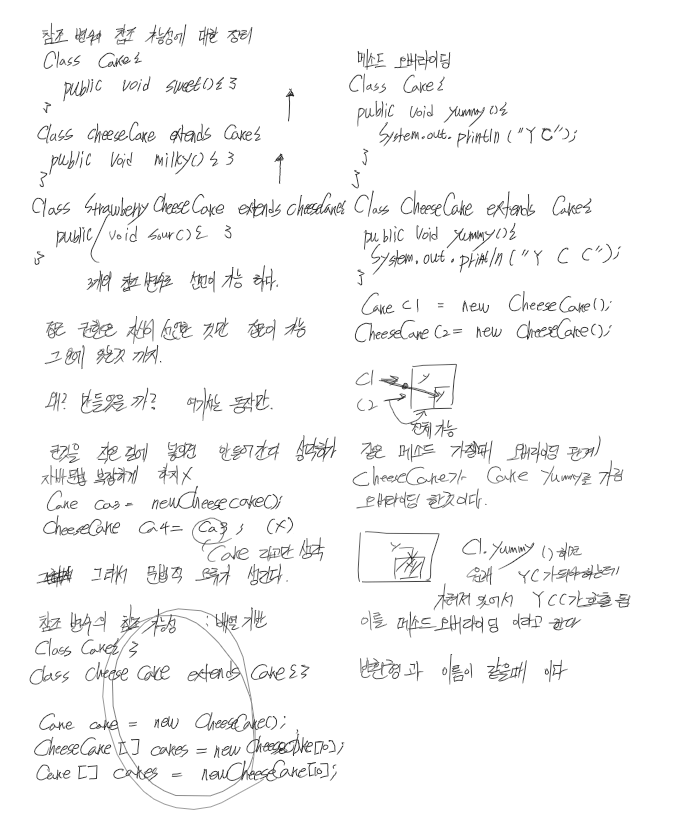 참조 변수의 참조 가능성에 대한 정리
Class Cake{
public void sweet(){ }
}
Class cheeseCake extends Cake{
public void milky(){ }
}
Class Strawberry CheeseCake extends cheeseCake{
public void sour(){ }
}
3개의 참조변수로 선언이 가능 하다.
접근 권한은 자신이 선언된 것만 접근이 가능
그 위에 있는것 까지.
왜? 만들었을 까? 여기서는 동작만.
큰것을 작은 곳에 넣으면 안들어간다 생각하자
자바 문법 복잡하게 하지 X
Cake ca3 = new Cheese cake();
CheeseCake ca4 = ca3; (X)
Cake 라고만 생각
그래서 문법적 오류가 생긴다.
참조 변수의 참조 가능성 : 배열 기반
Class Cake{ }
Class cheese Cake extends Cake{ }
Cake cake = new CheeseCake();
CheeseCake [ ] cakes = new CheeseCake[10];
Cake [ ] cakes = new CheeseCake[10];
메소드 오버라이딩
Class Cake{
public void yummy(){
System.out.println ("Y C");
}
}
Class CheeseCake extends Cake{
public void yummy(){
System.out.println ("Y C C");
}
Cake c1 = new CheeseCake();
CheeseCake c2 = new CheeseCake();
C1
C2
Y
Y
전체 가능
같은 메소드 가질때 오버라이딩 관계
CheeseCake가 Cake Yummy로 가림
오버라이딩 한것이다.
Y
C1.yummy () 하면
원래 YC가 되야 하는데
가려져 있어서 YCC가 호출 됨
이를 메소드 오버라이딩 이라고 한다
반환형과 이름이 같을때 이다